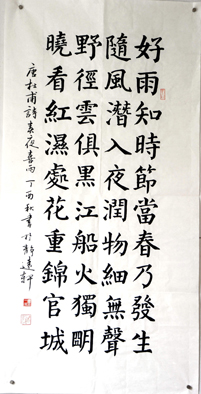 好雨知時節當春乃發生
隨風潛入夜潤物細無聲
野徑雲俱黑江船火獨明
曉看紅濕處花重錦官城
唐杜甫詩春夜喜雨丁酉秋書於靜遠軒